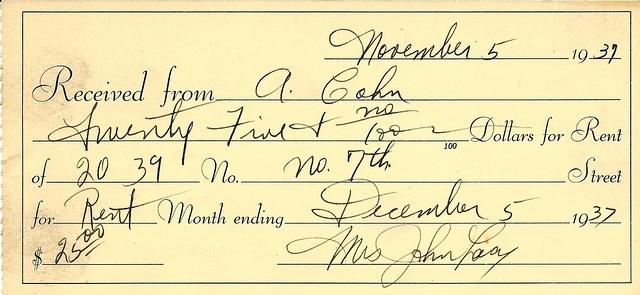 November 5 1937
Received from A. Cohn
Twenty Five & no/100 Dollars for Rent
100
of 20 39 No. no. 7th Street
for Rent Month ending December 5 1937
$ 25.00 Mrs John